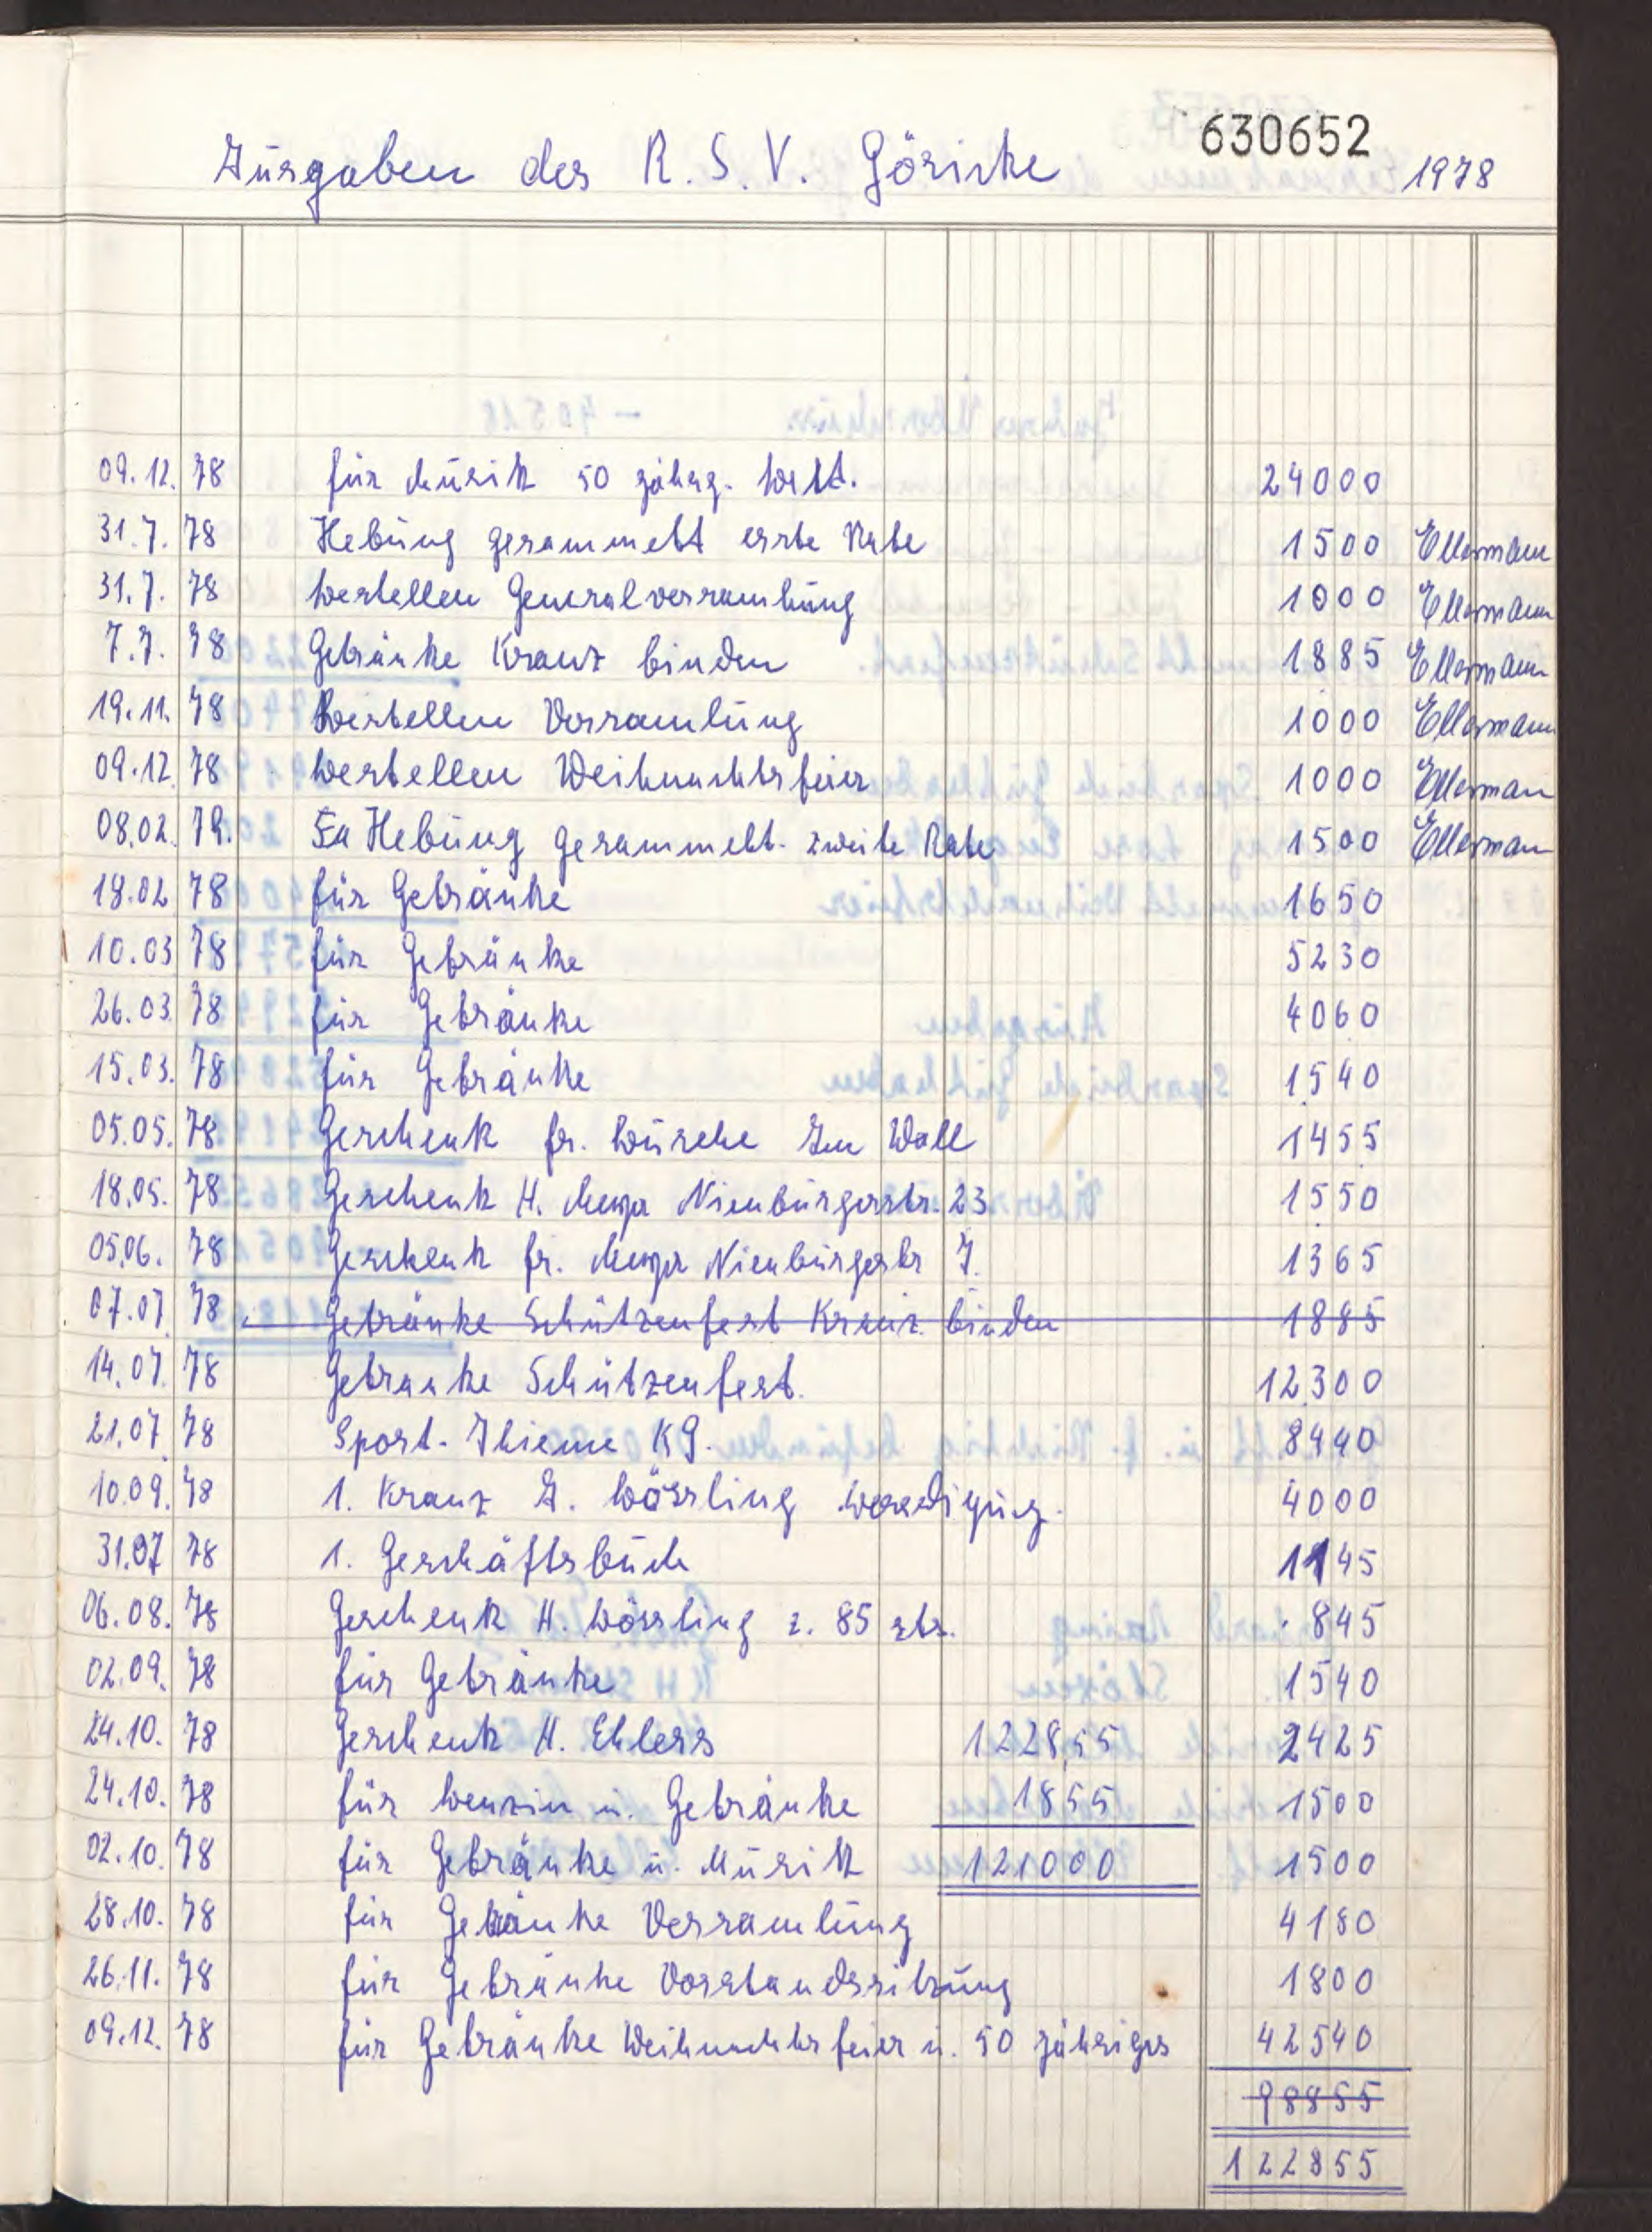 630652
Ausgaben des R.S.V. Göricke 1978
09.12. 78 für Musik 50 jährg. 24000
31.7. 78 Hebung gesammelt erste Rate 1500 Ellermann
31.7. 78 bestellen Generalversamlung 1000 Ellermann
7.7. 78 Getränke Kranz binden 1885 Ellermann
19.11. 78 Bestellen Versamlung 1000 Ellermann
09.12. 78 bestellen Weihnachtsfeier 1000 Ellerman
08.02. 79. Hebung gesammelt. zweite Rate 1500 Ellerman
18.02 78 für Getränke 1650
10.03 78 für Getränke 5230
26.03. 78 für Getränke 4060
15.03. 78 für Getränke 1540
05.05. 78 Geschenk fr. Busche Am Wall 1455
18.05. 78 Geschenk H. Meyer Nienburgerstr. 23 1550
05.06. 78 Geschenk fr. Meyer Nienburgerstr 7. 1365
07.07. 78 Getränke Schützenfest Kranz binden 1885
14.07. 78 Getranke Schützenfest. 12300
21.07 78 Sport-Thieme KG. 8440
10.09. 78 1. Kranz A. Bössling 4000
31.07 78 1. Geschäftsbuch 1145
06.08. 78 Geschenk H. Bössling z. 85 845
02.09. 78 für Getränke 1540
24.10. 78 Geschenk H. Ehlers 1228,55 2425
24.10. 78 für benzin u. Getränke 1855 1500
02.10. 78 für Getränke u. Musik 121000 1500
28.10. 78 für Getränke Versamlung 4180
26.11. 78 für Getränke Vorstandssitzung 1800
09.12. 78 für Getränke Weihnachtsfeier u. 50 jähriges 42540
98855
122855